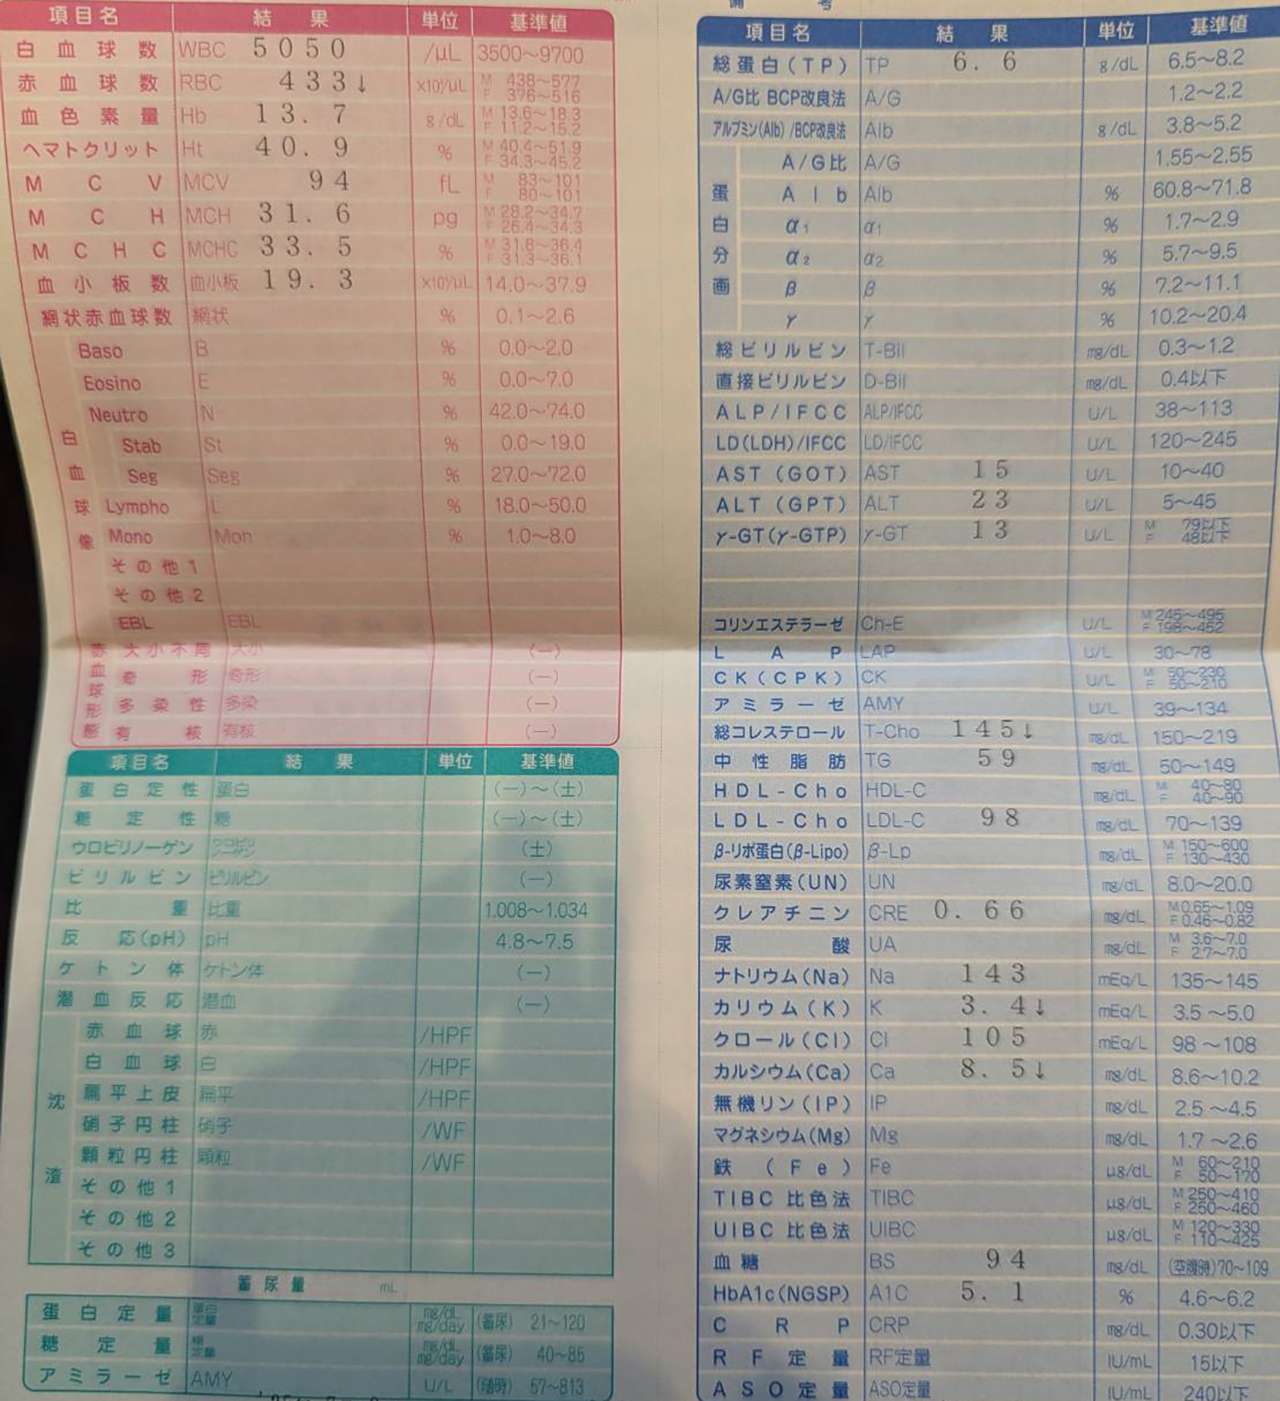 項目名 結果 単位 基準値
白血球数 WBC 5050 /μL 3500～9700
赤血球数 RBC 433↓ ×10⁴/μL M 438～577 F 376～516
血色素量 Hb 13.7 g/dL M 13.6～18.3 F 11.2～15.2
ヘマトクリット Ht 40.9 % M 40.4～51.9 F 34.3～45.2
MCV MCV 94 fL M 83～101 F 80～101
MCH MCH 31.6 pg M 28.2～34.7 F 26.4～34.3
MCHC MCHC 33.5 % M 31.8～36.4 F 31.3～36.1
血小板数 血小板 19.3 ×10⁴/μL 14.0～37.9
網状赤血球数 網状 % 0.1～2.6
白血球像
Baso B % 0.0～2.0
Eosino E % 0.0～7.0
Neutro N % 42.0～74.0
Stab St % 0.0～19.0
Seg Seg % 27.0～72.0
Lympho L % 18.0～50.0
Mono Mon % 1.0～8.0
その他1
その他2
EBL EBL
赤血球形態
大小不同 大小 (－)
奇形 奇形 (－)
多染性 多染 (－)
有核 有核 (－)
項目名 結果 単位 基準値
蛋白定性 蛋白 (－)～(±)
糖定性 糖 (－)～(±)
ウロビリノーゲン ウロビリノーゲン (±)
ビリルビン ビリルビン (－)
比重 比重 1.008～1.034
反応(pH) pH 4.8～7.5
ケトン体 ケトン体 (－)
潜血反応 潜血 (－)
沈渣
赤血球 赤 /HPF
白血球 白 /HPF
扁平上皮 扁平 /HPF
硝子円柱 硝子 /WF
顆粒円柱 顆粒 /WF
その他1
その他2
その他3
蓄尿量 mL
蛋白定量 蛋白定量 mg/dL mg/day (蓄尿) 21～120
糖定量 糖定量 mg/dL mg/day (蓄尿) 40～85
アミラーゼ AMY U/L (随時) 57～813
備考
項目名 結果 単位 基準値
総蛋白(TP) TP 6.6 g/dL 6.5～8.2
A/G比 BCP改良法 A/G 1.2～2.2
アルブミン(Alb)/BCP改良法 Alb g/dL 3.8～5.2
蛋白分画
A/G比 A/G 1.55～2.55
Alb Alb % 60.8～71.8
α₁ α₁ % 1.7～2.9
α₂ α₂ % 5.7～9.5
β β % 7.2～11.1
γ γ % 10.2～20.4
総ビリルビン T-Bil mg/dL 0.3～1.2
直接ビリルビン D-Bil mg/dL 0.4以下
ALP/IFCC ALP/IFCC U/L 38～113
LD(LDH)/IFCC LD/IFCC U/L 120～245
AST(GOT) AST 15 U/L 10～40
ALT(GPT) ALT 23 U/L 5～45
γ-GT(γ-GTP) γ-GT 13 U/L M 79以下 F 48以下
コリンエステラーゼ Ch-E U/L M 245～495 F 198～452
LAP LAP U/L 30～78
CK(CPK) CK U/L M 50～230 F 50～210
アミラーゼ AMY U/L 39～134
総コレステロール T-Cho 145↓ mg/dL 150～219
中性脂肪 TG 59 mg/dL 50～149
HDL-Cho HDL-C mg/dL M 40～80 F 40～90
LDL-Cho LDL-C 98 mg/dL 70～139
β-リポ蛋白(β-Lipo) β-Lp mg/dL M 150～600 F 130～430
尿素窒素(UN) UN mg/dL 8.0～20.0
クレアチニン CRE 0.66 mg/dL M 0.65～1.09 F 0.46～0.82
尿酸 UA mg/dL M 3.6～7.0 F 2.7～7.0
ナトリウム(Na) Na 143 mEq/L 135～145
カリウム(K) K 3.4↓ mEq/L 3.5～5.0
クロール(Cl) Cl 105 mEq/L 98～108
カルシウム(Ca) Ca 8.5↓ mg/dL 8.6～10.2
無機リン(IP) IP mg/dL 2.5～4.5
マグネシウム(Mg) Mg mg/dL 1.7～2.6
鉄(Fe) Fe μg/dL M 60～210 F 50～170
TIBC 比色法 TIBC μg/dL M 250～410 F 250～460
UIBC 比色法 UIBC μg/dL M 120～330 F 110～425
血糖 BS 94 mg/dL (空腹時)70～109
HbA1c(NGSP) A1C 5.1 % 4.6～6.2
CRP CRP mg/dL 0.30以下
RF定量 RF定量 IU/mL 15以下
ASO定量 ASO定量 IU/mL 240以下